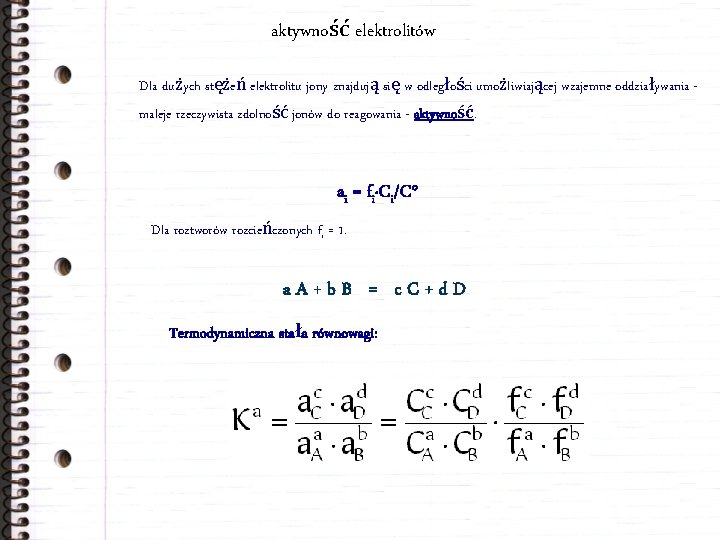 aktywność elektrolitów
Dla dużych stężeń elektrolitu jony znajdują się w odległości umożliwiającej wzajemne oddziaływania -
maleje rzeczywista zdolność jonów do reagowania - aktywność.
aᵢ = fᵢ·Cᵢ/C°
Dla roztworów rozcieńczonych fᵢ = 1.
a A + b B = c C + d D
Termodynamiczna stała równowagi:
K^a = (a_C^c · a_D^d)/(a_A^a · a_B^b) = (C_C^c · C_D^d)/(C_A^a · C_B^b) · (f_C^c · f_D^d)/(f_A^a · f_B^b)